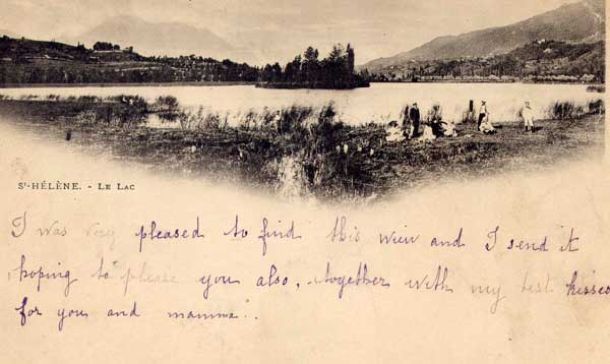 St-HÉLÈNE. - LE LAC
I was very pleased to find this wiew and I send it
hoping to please you also, together with my best kisses
for you and mamma.